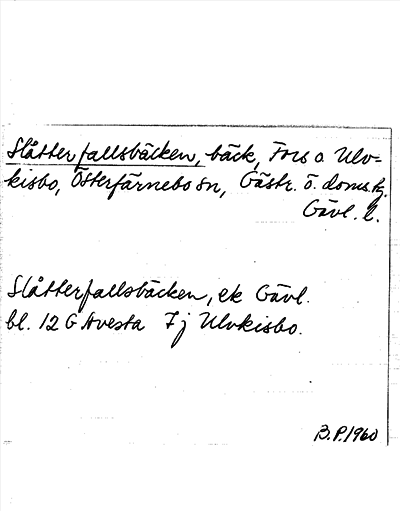 Slåtterfallsbäcken, bäck, Fors o Ulv-
kisbo, Österfärnebo sn, Gästr. ö. doms.
Gävl. l.
Slåtterfallsbäcken, ek Gävl.
bl. 12 G Avesta 7j Ulvkisbo.
B.P. 1960